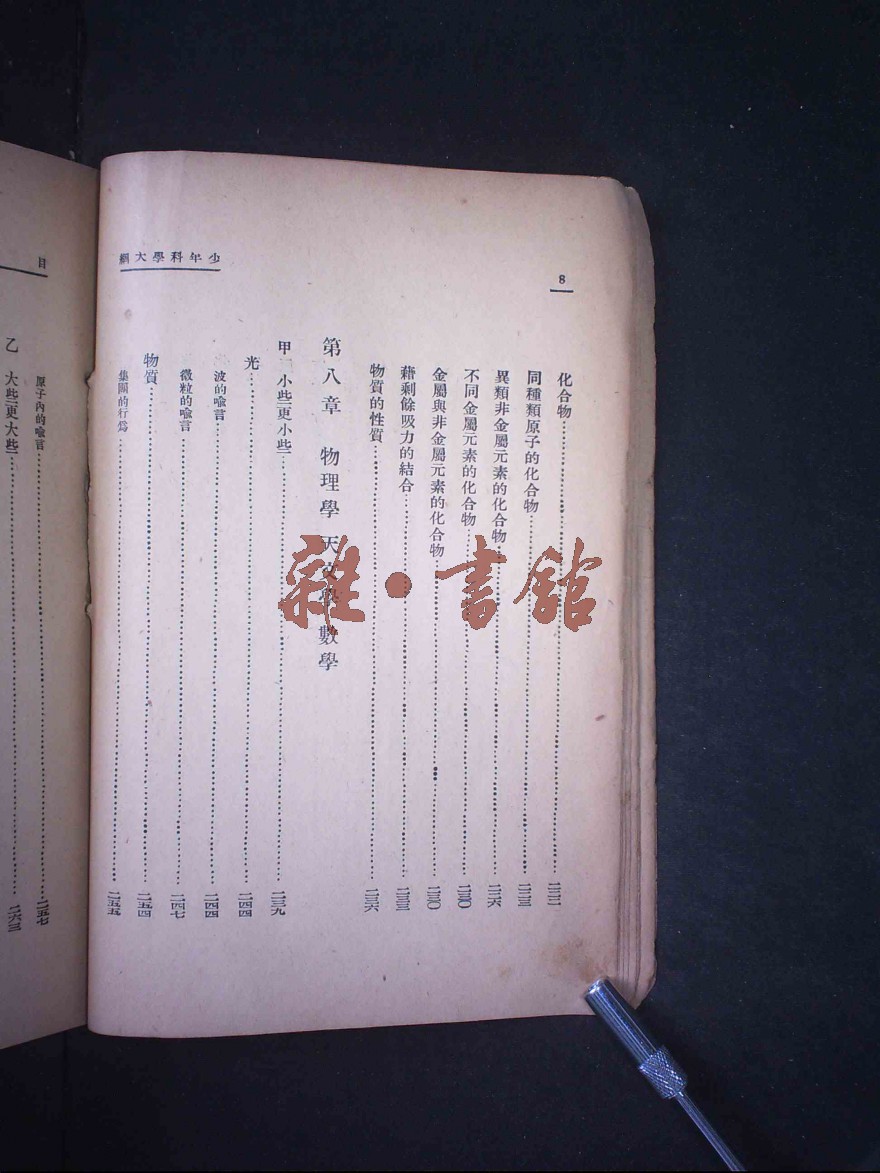 少年科學大綱
8
化合物
同種類原子的化合物
異類非金屬元素的化合物 二二六
不同金屬元素的化合物 二三〇
金屬與非金屬元素的化合物 二三〇
藉剩餘吸力的結合 二三三
物質的性質 二三六
第八章 物理學 天文學 數學
甲 小些—更小些— 二三九
光 二四四
波的喻言 二四四
微粒的喻言 二四七
物質 二五四
集團的行為 二五五
目
原子內的喻言 二五七
乙 大些—更大些— 二六三
雜·書館